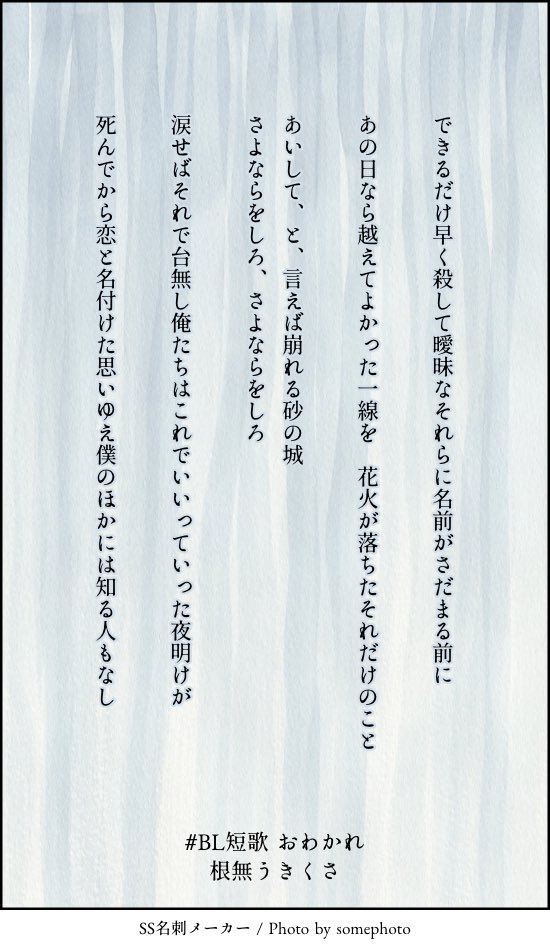 できるだけ早く殺して曖昧なそれらに名前がさだまる前に
あの日なら越えてよかった一線を　花火が落ちたそれだけのこと
あいして、と、言えば崩れる砂の城
さよならをしろ、さよならをしろ
涙せばそれで台無し俺たちはこれでいいっていった夜明けが
死んでから恋と名付けた思いゆえ僕のほかには知る人もなし
#BL短歌 おわかれ
根無うきくさ
SS名刺メーカー / Photo by somephoto